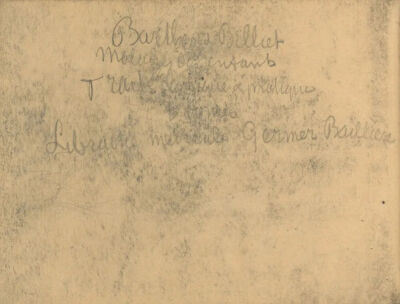 Barthez & Billiet
Maladies des enfants
Traité clinique & pratique
Librairie médicale Germer Baillière